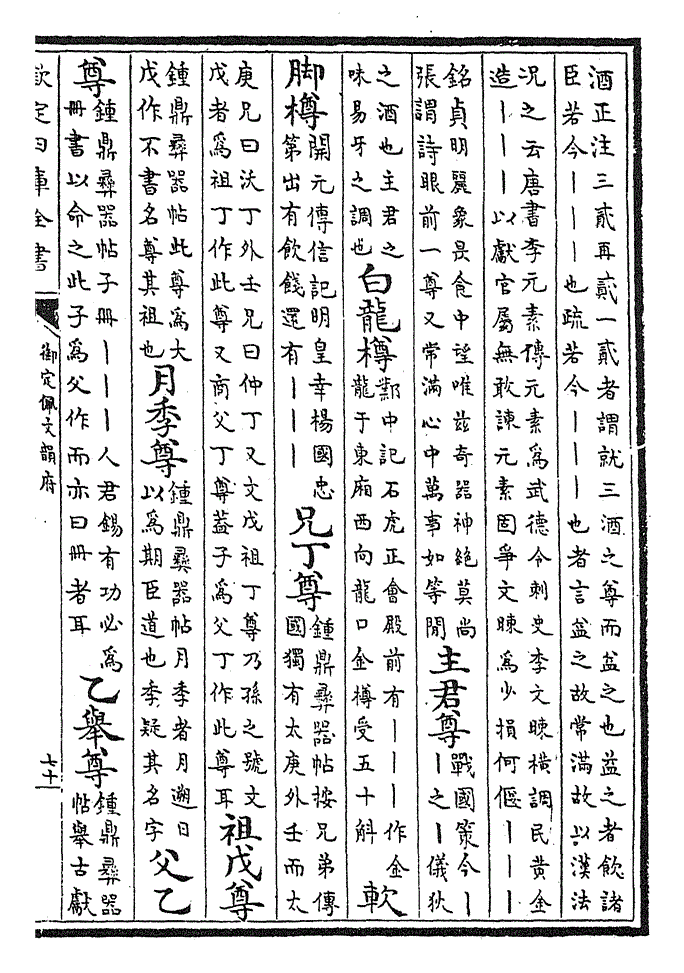 酒正注三貳再貳一貳者謂就三酒之尊而益之也益之者飲諸
臣若今｜｜｜也疏若今｜｜｜也者言益之故常滿故以漢法
况之云唐書李元素傳元素為武德令刺史李文暕橫調民黃金
造｜｜｜以獻官屬無敢諫元素固爭文暕為少損何偃｜｜｜
銘貞明麗象昃食中望唯兹奇器神絶莫尚
張謂詩眼前一尊又常滿心中萬事如等閒
主君尊
戰國策今｜
｜之｜儀狄
之酒也主君之
味易牙之調也
白龍樽
鄴中記石虎正會殿前有｜｜｜作金
龍于東廂西向龍口金樽受五十斛
軟
脚樽
開元傳信記明皇幸楊國忠
第出有飲餞還有｜｜｜
兄丁尊
鍾鼎彞器帖按兄弟傳
國獨有太庚外壬而太
庚兄曰沃丁外壬兄曰仲丁又文戊祖丁尊乃孫之號文
戊者爲祖丁作此尊又商父丁尊葢子爲父丁作此尊耳
祖戊尊
鍾鼎彞器帖此尊爲大
戊作不書名尊其祖也
月季尊
鍾鼎彞器帖月季者月遡日
以爲期臣道也季疑其名字
父乙
尊
鍾鼎彞器帖子冊｜｜｜人君錫有功必爲
冊書以命之此子爲父作而亦曰冊者耳
乙舉尊
鍾鼎彞器
帖舉古獻
欽定四庫全書
御定佩文韻府
七十一